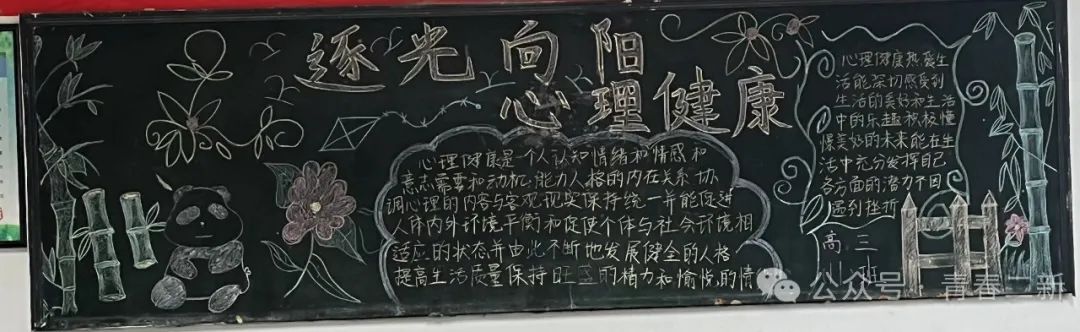 逐光向阳
心理健康
心理健康是一个人认知情绪和情感和
意志需要和动机,能力人格的内在关系协
调心理的内容与客观现实保持统一并能促进
人体内外环境平衡和促使个体与社会环境相
适应的状态并由此不断地发展健全的人格
提高生活质量保持旺盛的精力和愉悦的情
心理健康热爱生
活能深切感受到
生活的美好和生活
中的乐趣积极憧
憬美好的未来能在生
活中充分发挥自己
各方面的潜力不因
遇到挫折
高三
班
公众号·青春二新